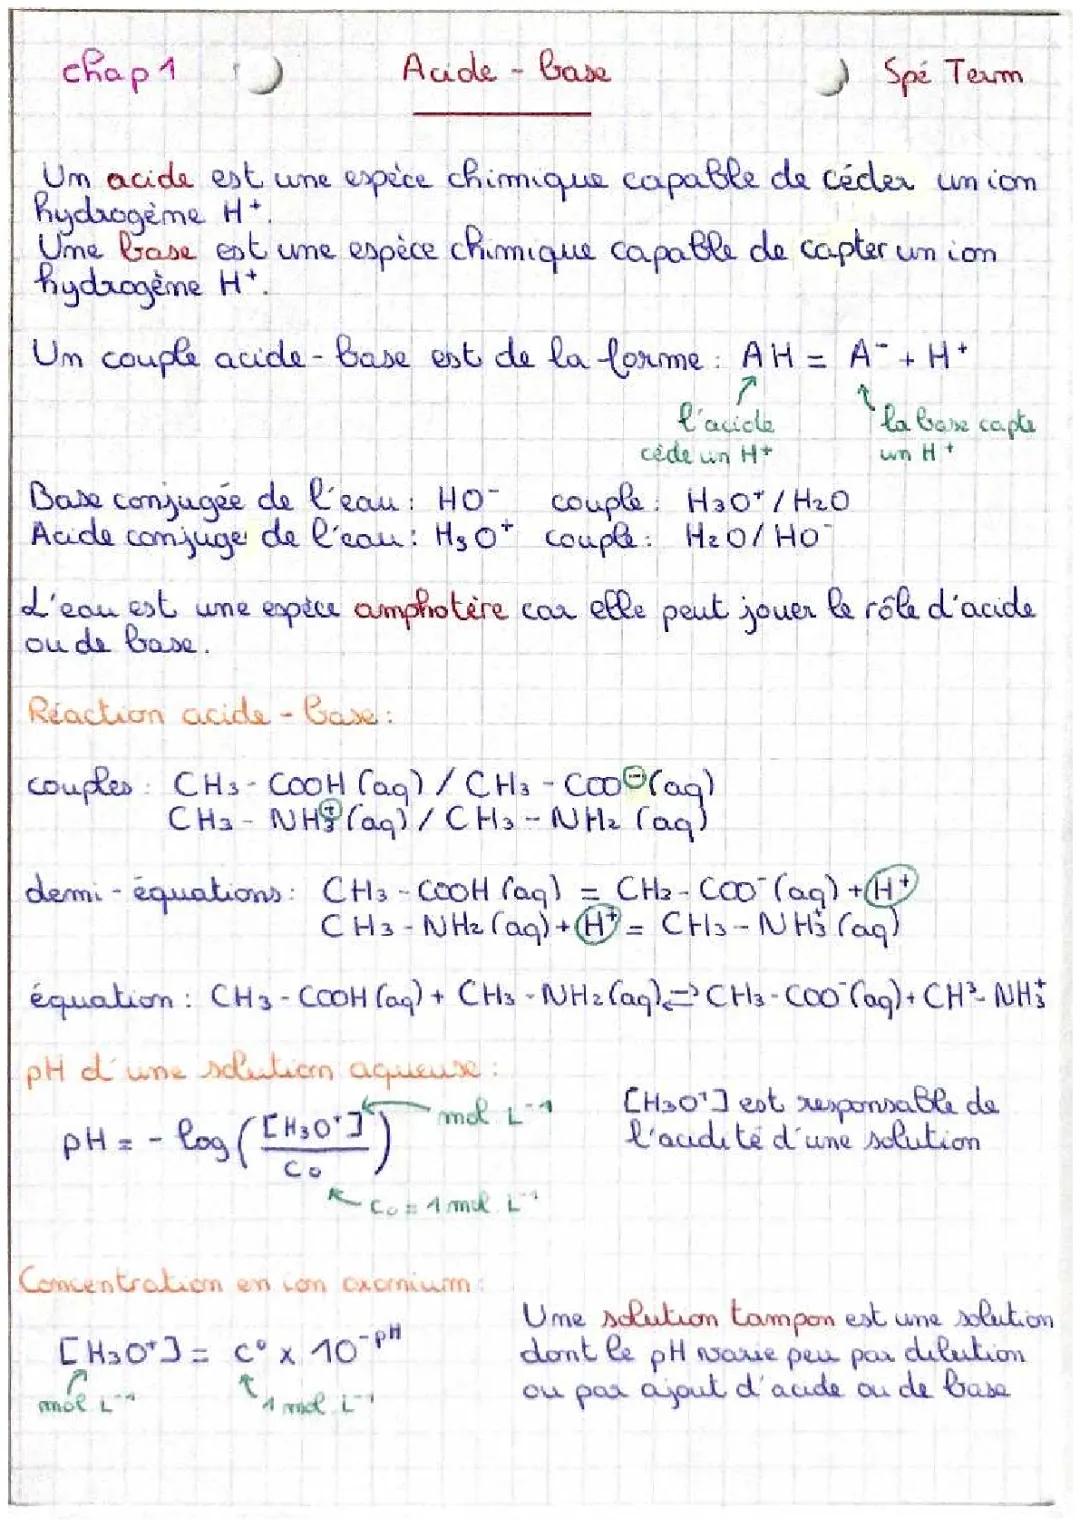 chap 1 Acide - base Spé Term
Un acide est une espèce chimique capable de céder un ion
hydrogène H⁺.
Une base est une espèce chimique capable de capter un ion
hydrogène H⁺.
Un couple acide - base est de la forme : AH = A⁻ + H⁺
l'acide
cède un H⁺
la base capte
un H⁺
Base conjugée de l'eau : HO⁻ couple : H₃O⁺ / H₂O
Acide conjugé de l'eau : H₃O⁺ couple : H₂O / HO⁻
L'eau est une espèce amphotère car elle peut jouer le rôle d'acide
ou de base.
Réaction acide - base :
couples : CH₃ - COOH (aq) / CH₃ - COO⊖ (aq)
CH₃ - NH₃⊕ (aq) / CH₃ - NH₂ (aq)
demi - équations : CH₃ - COOH (aq) = CH₃ - COO⁻ (aq) + H⁺
CH₃ - NH₂ (aq) + H⁺ = CH₃ - NH₃⁺ (aq)
équation : CH₃ - COOH (aq) + CH₃ - NH₂ (aq) ⇌ CH₃ - COO⁻ (aq) + CH³ - NH₃⁺
pH d'une solution aqueuse :
pH = - log ( [H₃O⁺] / C₀ )
mol L⁻¹
C₀ = 1 mol L⁻¹
[H₃O⁺] est responsable de
l'acidité d'une solution
Concentration en ion oxonium :
[H₃O⁺] = C° x 10⁻ᵖᴴ
mol L⁻¹
1 mol L⁻¹
Une solution tampon est une solution
dont le pH varie peu par dilution
ou par ajout d'acide ou de base